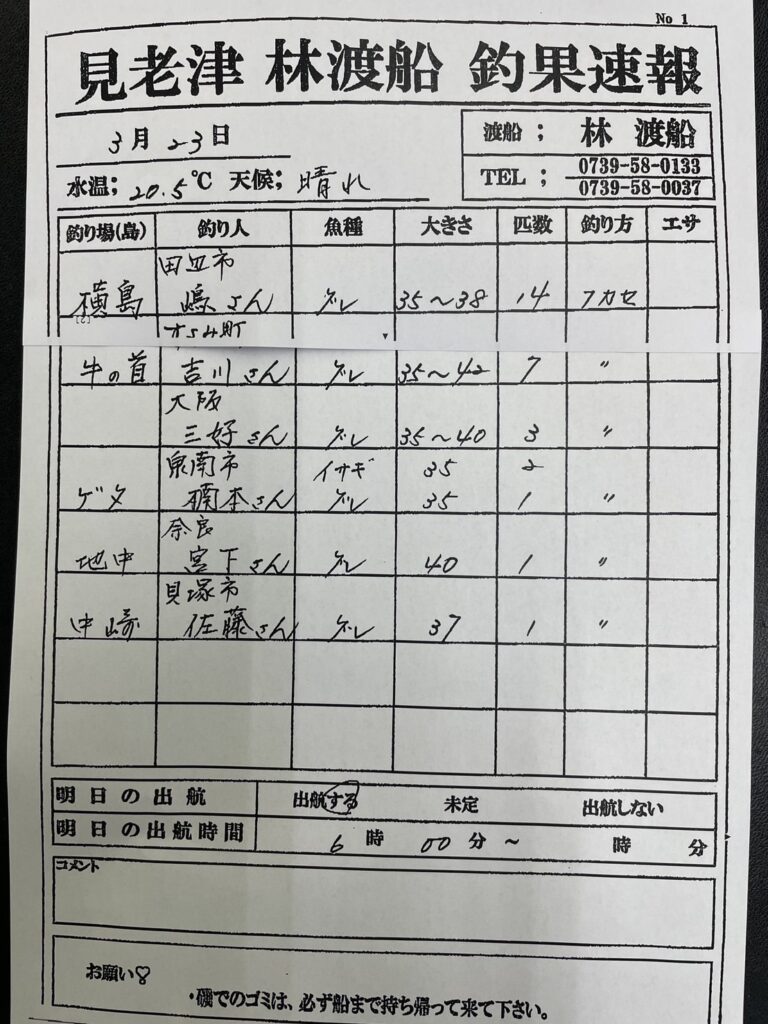 No 1
見老津 林渡船 釣果速報
3月 23日
渡船； 林 渡船
水温； 20.5℃ 天候； 晴れ
TEL； 0739-58-0133
0739-58-0037
釣り場(島) 釣り人 魚種 大きさ 匹数 釣り方 エサ
田辺市
横島 嶋さん グレ 35～38 14 フカセ
すさみ町
牛の首 吉川さん グレ 35～42 7 〃
大阪
三好さん グレ 35～40 3 〃
泉南市 イサギ 35 2
ゲタ 楠本さん グレ 35 1 〃
奈良
地中 宮下さん グレ 40 1 〃
貝塚市
中崎 佐藤さん グレ 37 1 〃
明日の出航 出航する 未定 出航しない
明日の出航時間 6時 00分～ 時 分
コメント
お願い♡
・磯でのゴミは、必ず船まで持ち帰って来て下さい。